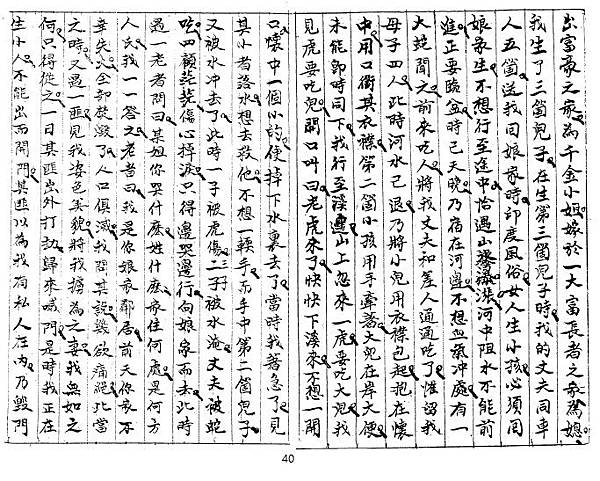 出富豪之家為千金小姐嫁於一大富長者之家為媳
我生了三箇兒子在生第三箇兒子時我的丈夫同車
人五箇送我回娘家時印度風俗女人生小孩必須回
娘家生不想行至途中恰遇山洪河中阻水不能前
進正要臨盆時已天晚乃宿在河邊不想血氣冲處有一
大蛇聞之前來吃人將我丈夫和差人通通吃了惟留我
母子四人此時河水已退乃將小兒用衣襟包起抱在懷
中用口銜其衣襟第二箇小孩用手牽著大兒在岸大便
未能卽時同下我行至溪邊山上忽來一虎要吃大兒我
見虎要吃兒開口叫曰老虎來了快快下溪來不想一開
口懷中一個小的使掉下水裏去了當時我著急了見
其小者落水想去救他不想一鞣手而手中第二箇兒子
又被水冲去了此時一子被虎傷二子被水淹丈夫被蛇
吃四顧茫茫傷心掉淚只得邊哭邊行向娘家而去此時
遇一老者問曰某姐你哭什麽姓什麽家住何處是何方
人氏我一一答之老者曰我是你娘家鄰居前天你家不
幸失火全部焚燬了人口俱滅我聞其說幾欲痛絕此當
之時又遇一匪見我姿色美貌將我擄為之妻我無如之
何只得從之一日其匪出外打刼歸來喊門是時我正在
生小人不能出而開門其匪以為我有私人在內乃毀門
40